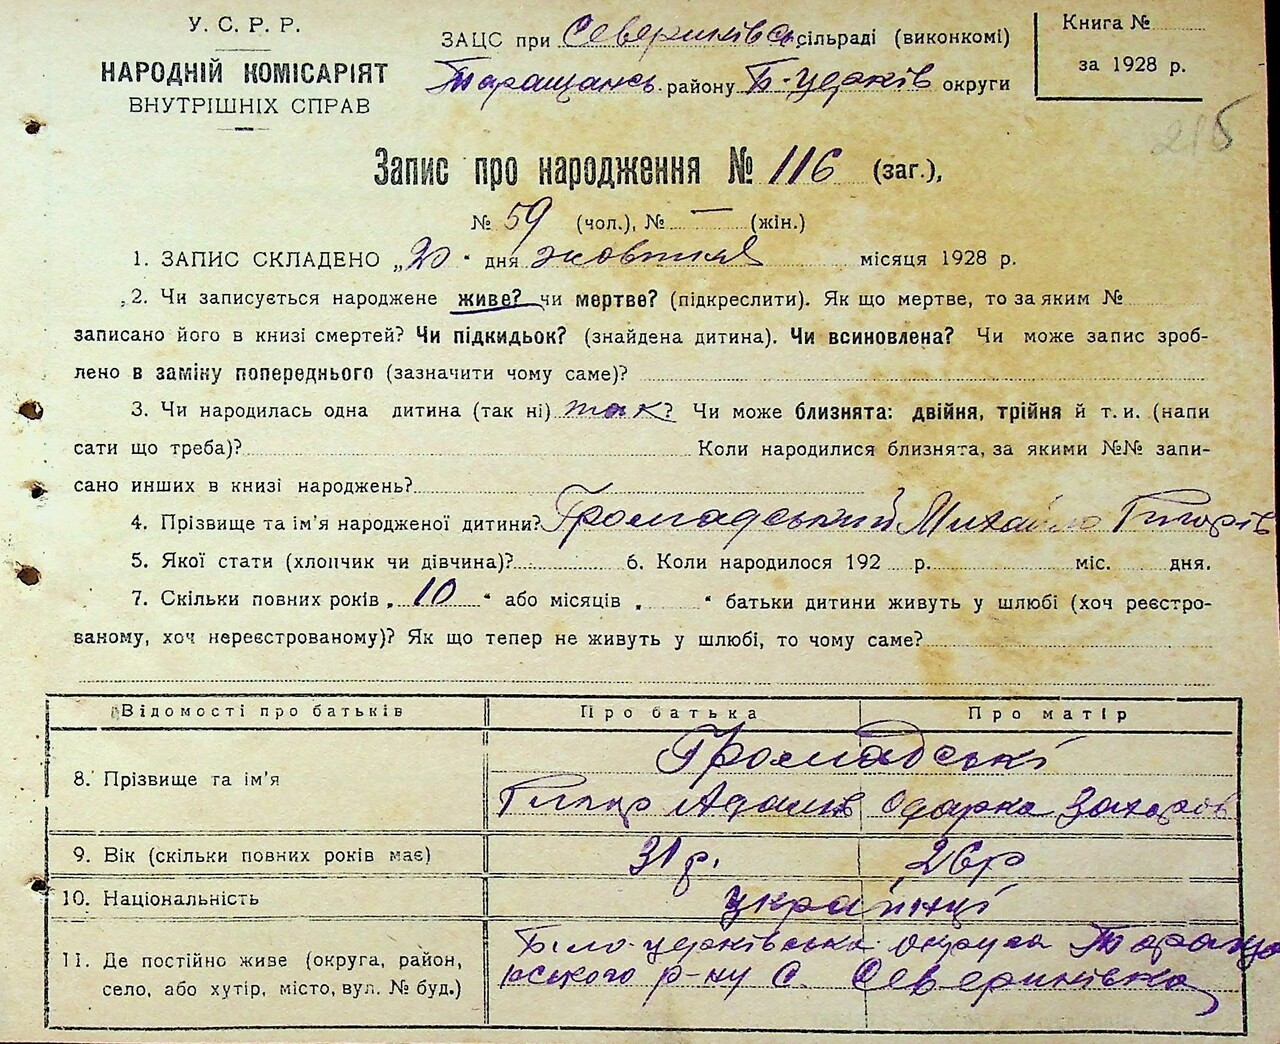 У. С. Р. Р.
НАРОДНІЙ КОМІСАРІЯТ
ВНУТРІШНІХ СПРАВ
ЗАЦС при Северинівськ. сільраді (виконкомі)
Таращанськ. району Б-Церків округи
Книга №
за 1928 р.
215
Запис про народження № 116 (заг.),
№ 59 (чол.), № — (жін.)
1. ЗАПИС СКЛАДЕНО „20“ дня жовтня місяця 1928 р.
2. Чи записується народжене живе? чи мертве? (підкреслити). Як що мертве, то за яким №
записано його в книзі смертей? Чи підкидьок? (знайдена дитина). Чи всиновлена? Чи може запис зроб-
лено в заміну попереднього (зазначити чому саме)?
3. Чи народилась одна дитина (так ні) так? Чи може близнята: двійня, трійня й т. и. (напи
сати що треба)? Коли народилися близнята, за якими №№ запи-
сано инших в книзі народжень?
4. Прізвище та ім'я народженої дитини? Громадський Михайло Григорів
5. Якої стати (хлопчик чи дівчина)? 6. Коли народилося 192 р. міс. дня.
7. Скільки повних років „10“ або місяців „ “ батьки дитини живуть у шлюбі (хоч реєстро-
ваному, хоч нереєстрованому)? Як що тепер не живуть у шлюбі, то чому саме?
Відомості про батьків Про батька Про матір
Громадські
8. Прізвище та ім'я
Григор Адамів Одарка Захаров
9. Вік (скільки повних років має) 31 р. 26 р
10. Національність українці
11. Де постійно живе (округа, район,
село, або хутір, місто, вул. № буд.)
Біло-церківська округа Тараща
нського р-ну С. Северинівка